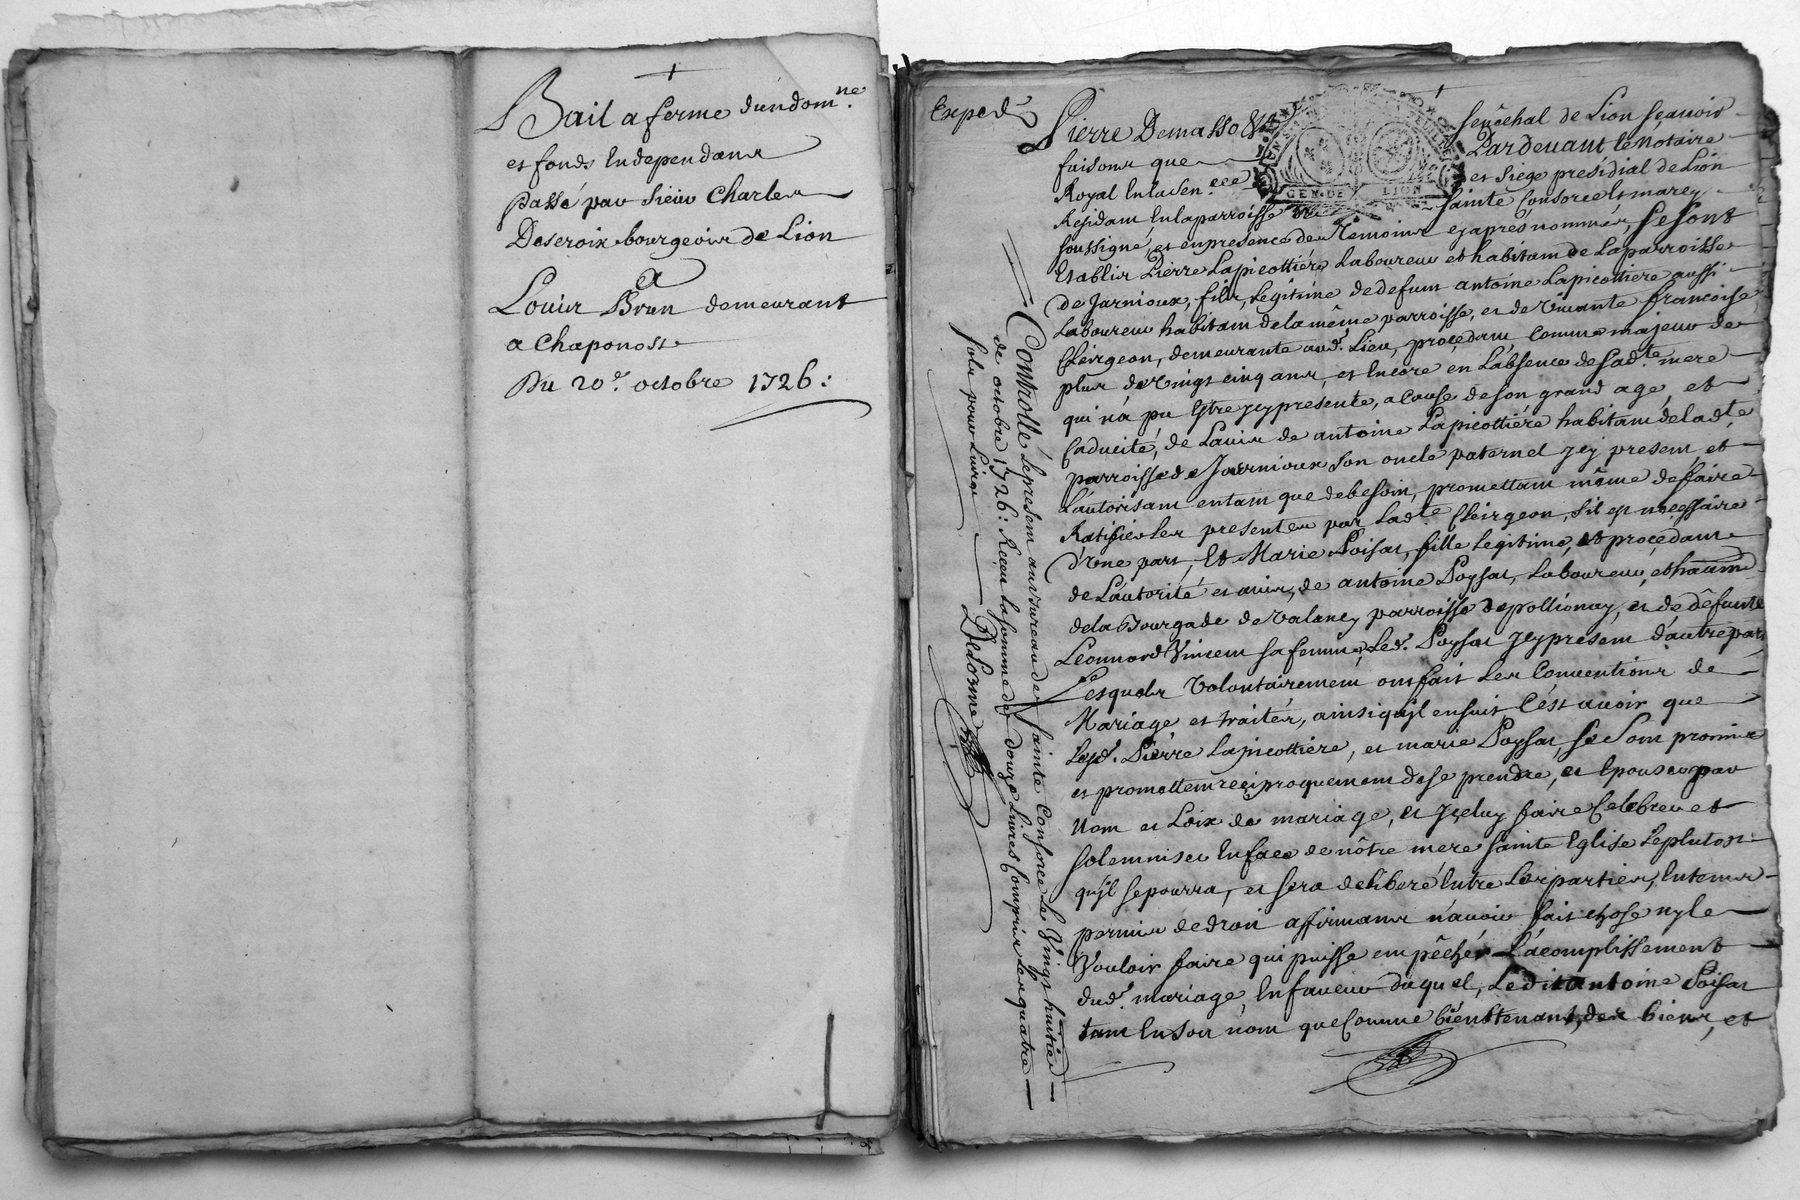 Bail a ferme d'un dom.ne
et fonds en dependans
passé par sieur Charles
Descroix bourgeois de Lion
a
Louis Brun demeurant
a Chaponost
Du 20e. octobre 1726:
Exped
Pierre Demasso &ca Senéchal de Lion sçavoir
faisons que Pardevant le Notaire
Royal en la Sen.ccé et siege présidial de Lion
Residant en la parroisse de Sainte Consorce et marcy
soussigné, et en presence des temoins cy apres nommés, se sont
Etablis Pierre Lapicottiére Laboureur et habitant de la parroisse
de Jarnioux, fils Legitime de defunt antoine Lapicottiere aussi
Laboureur habitant de la même parroisse, et de vivante francoise
Cleirgeon, demeurante aud. Lieu, procedant comme majeur de
plus de vingt cinq ans, et encore en L'absence de sad.te mere
qui n'a pu Estre jcy presente, a cause de son grand age, et
Caducité, de L'avis de antoine Lapicottiére habitant de lad.te
parroisse de Jarnioux son oncle paternel jcy present, et
L'autorisant entant que de besoin, promettant même de faire
Ratifier les presentes par Lad.te Cleirgeon, s'il est necessaire
D'une part, Et Marie Poisat, fille Legitime, et procedant
de L'autorité et avis, de antoine Poysat, Laboureur, et habitant
de la Bourgade de valency parroisse de pollionay, et de défunte
Leonnard Vincent sa femme, Led. Poysat jcy present d'autre part
Lesquels volontairement ont fait les Conventions de
Mariage et traités, ainsi qu'jl en suit C'est avoir que
Lesd. Pierre Lapicottiére, et marie Poysat, se sont promis
et promettent reciproquement de se prendre, et Epouser par
Nom et Loix de mariage, et jceluy faire Celebrer et
solemniser en face de nôtre mere sainte Eglise le plutost
qu'jl se pourra, et sera deliberé Entre Les parties, Entems
permis de droit affirmans n'avoir fait chose ny le
Vouloir faire qui puisse empêcher L'acomplissement
dud. mariage, En faveur duquel, Ledit antoine Poisat
tant En son nom que Comme bientenant, des biens, et
Controllé le present au bureau de Sainte Consorce Le Vingt huitié
de octobre 1726: Receu la somme de douze Livres Compris les quatre
sols pour Livre
Delorme